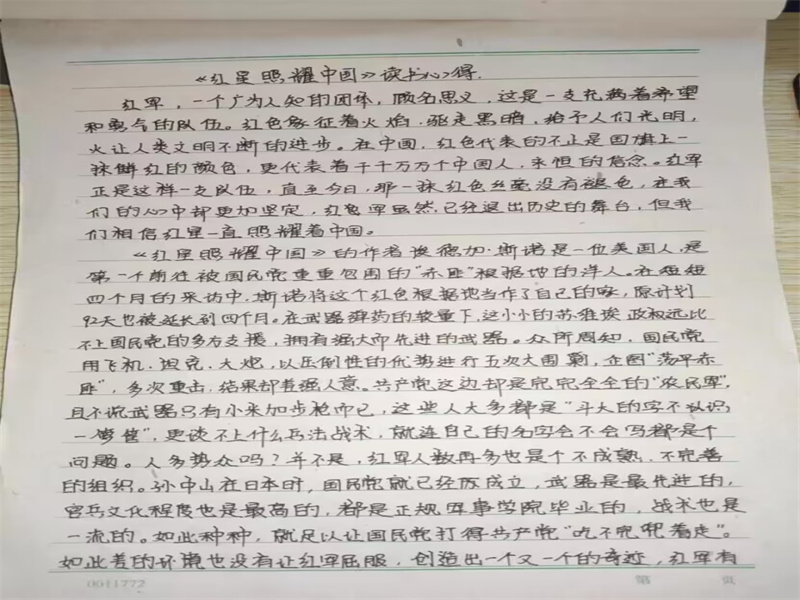 《红星照耀中国》读书心得.
红军，一个广为人知的团体，顾名思义，这是一支充满着希望
和勇气的队伍。红色象征着火焰，驱走黑暗，给予人们光明，
火让人类文明不断的进步。在中国，红色代表的不止是国旗上一
抹鲜红的颜色，更代表着千千万万个中国人，永恒的信念。红军
正是这样一支队伍，直至今日，那一抹红色丝毫没有褪色，在我
们的心中却更加坚定，红军虽然已经退出历史的舞台，但我
们相信红星一直照耀着中国。
《红星照耀中国》的作者埃德加·斯诺是一位美国人，是
第一个前往被国民党重重包围的"赤匪"根据地的洋人。在短短
四个月的采访中，斯诺将这个红色根据地当作了自己的家，原计划
92天也被延长到四个月。在武器弹药的较量下，这小小的苏维埃政权远比
不上国民党的多方支援，拥有强大而先进的武器。众所周知，国民党
用飞机、坦克、大炮，以压倒性的优势进行五次大围剿，企图"荡平赤
匪"，多次重击，结果却差强人意。共产党这边却是完完全全的"农民军"，
且不说武器只有小米加步枪而已，这些人大多都是"斗大的字不认识
一箩筐"，更谈不上什么兵法战术，就连自己的名字会不会写都是个
问题。人多势众吗？并不是，红军人数再多也是个不成熟、不完善
的组织。孙中山在日本时，国民党就已经历成立，武器是最先进的，
官兵文化程度也是最高的，都是正规军事学院毕业的，战术也是
一流的。如此种种，就足以让国民党打得共产党"吃不完兜着走"。
如此差的环境也没有让红军屈服，创造出一个又一个的奇迹，红军有
0011772
第 页